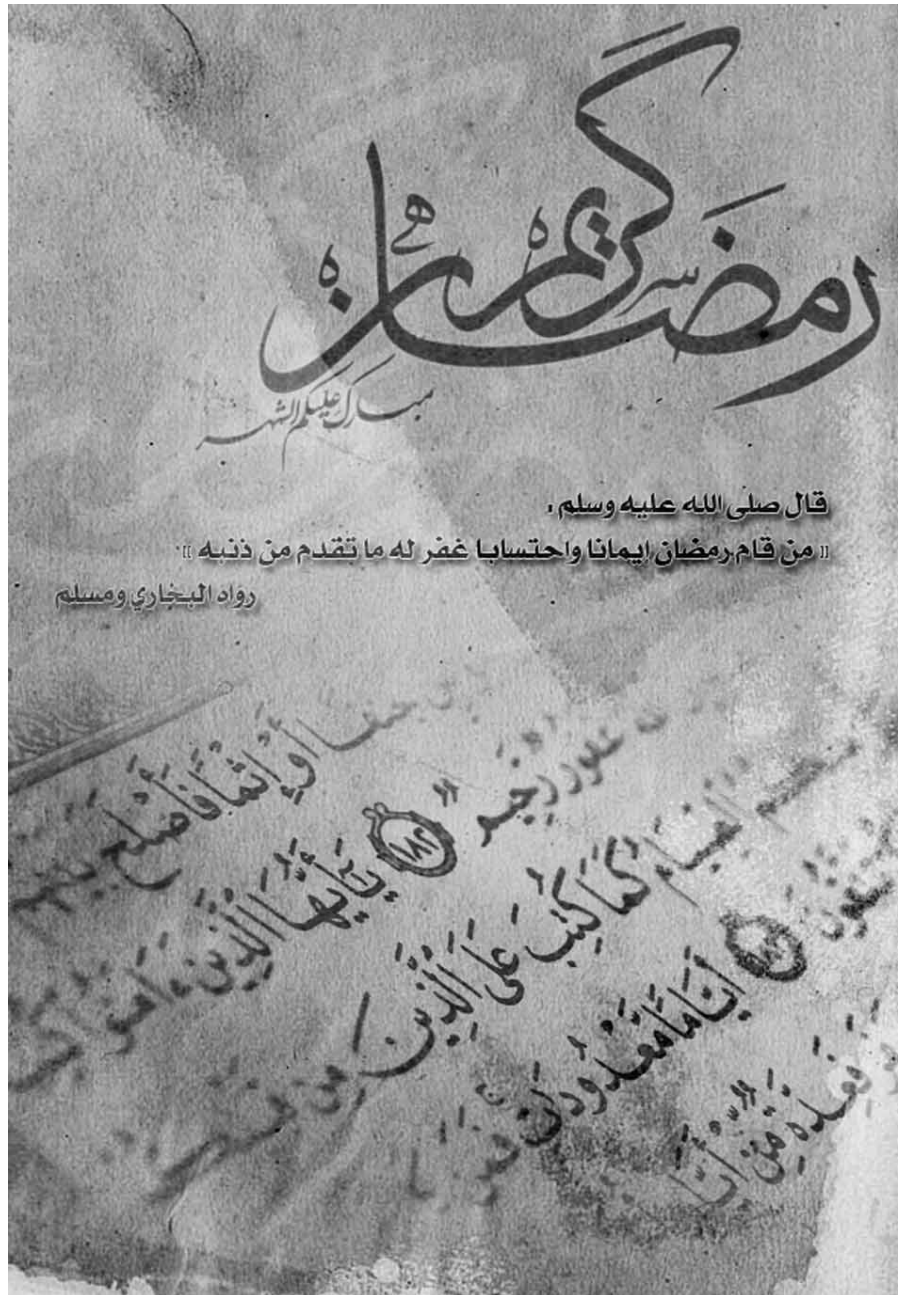 رمضان كريم
مبارك عليكم الشهر
قال صلى الله عليه وسلم :
(( من قام رمضان إيمانا واحتسابا غفر له ما تقدم من ذنبه ))
رواه البخاري ومسلم
جنفا أَوْ إِثْمًا فَأَصْلَحَ بَيْنَهُمْ
غفور رَّحِيم ١٨٢ يَٰٓأَيُّهَا ٱلَّذِينَ ءَامَنُوا۟ كتب
الصيام كَمَا كُتِبَ عَلَى ٱلَّذِينَ مِن قبلكم
تتقون ١٨٣ أَيَّامًا مَّعْدُودَٰتٍ فَمَن
فَعِدَّةٌ مِّنْ أَيَّا